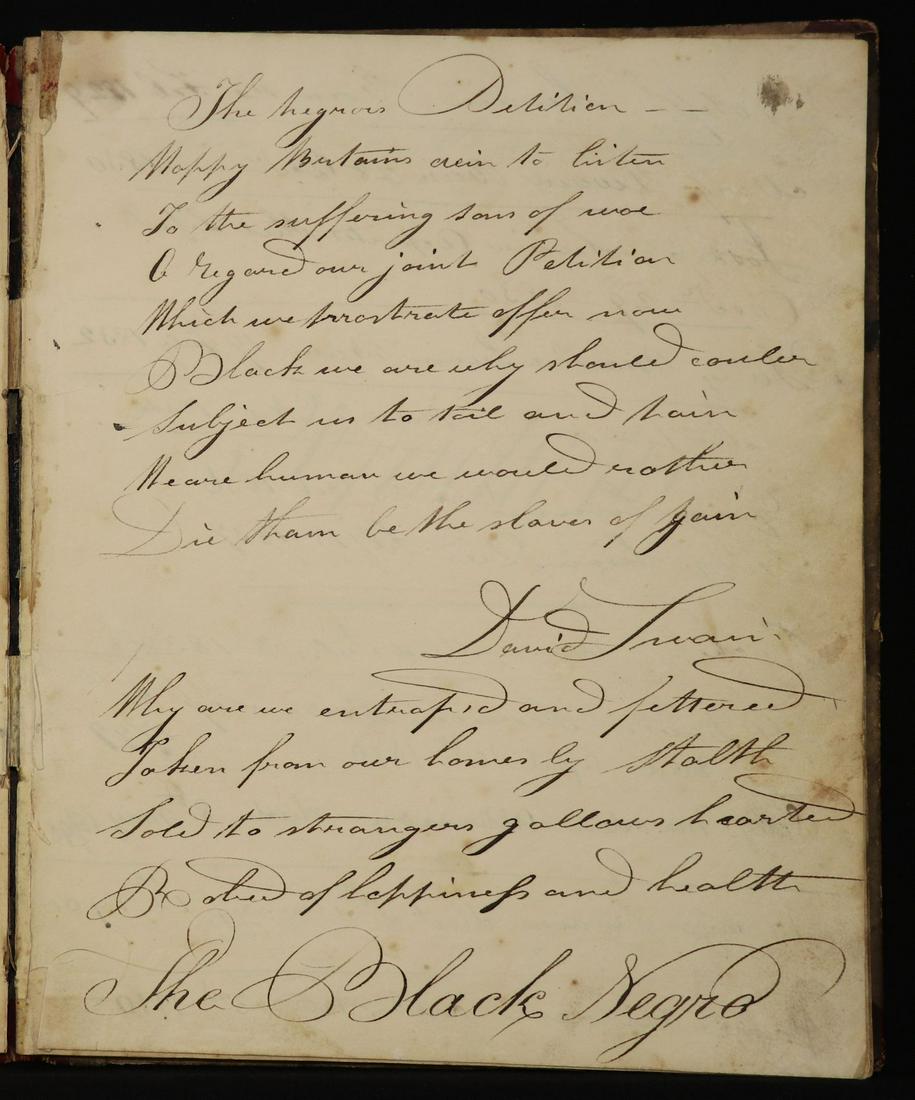 The negroes Petition — —
Happy Britains dein to listen
To the suffering sons of woe
O Regard our joint Petition
Which we prostrate offer now
Black we are why should couler
Subject us to toil and pain
We are human we would rather
Die than be the slaves of gain
David Swain
Why are we entrap'd and fettered
Taken from our homes by Stalth
Sold to strangers gallows hearted
Robed of heppiness and health
The Black Negro